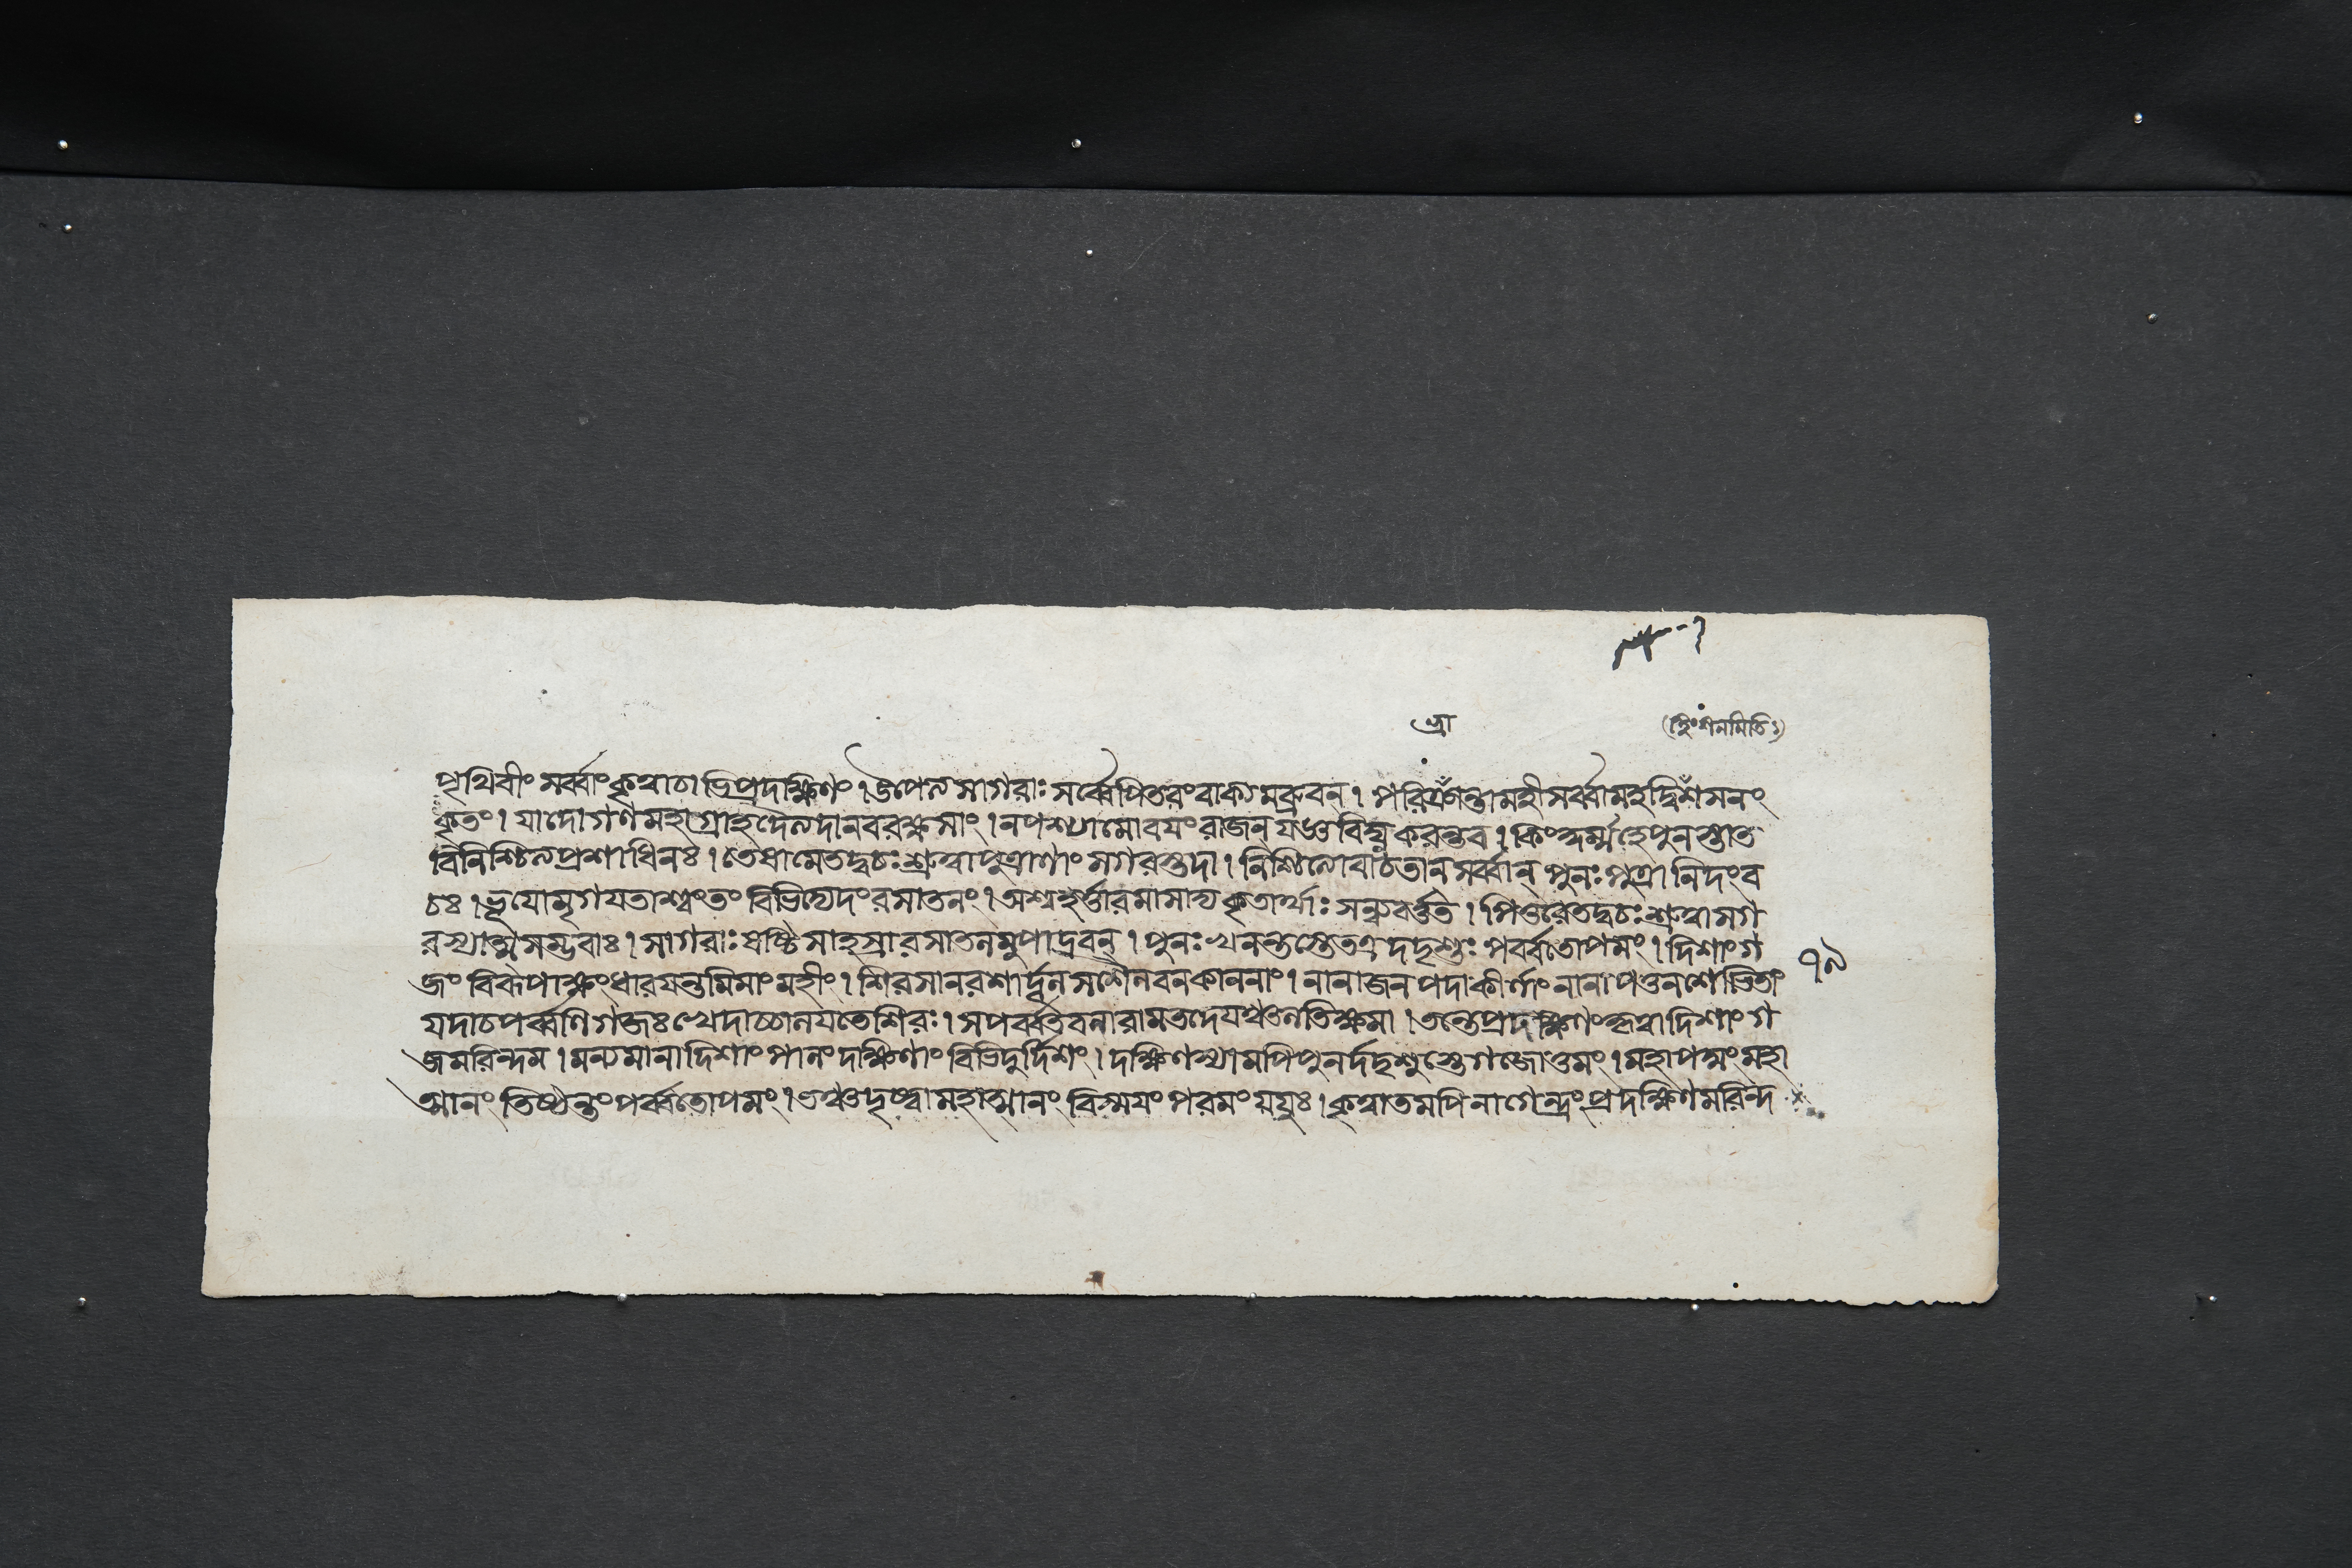 ক্রা
(ত্নুংশনমিতিঃ)
পৃথিবীং সর্ব্বাং কৃত্বা চাভিপ্রদক্ষিণং । উপেত্য সাগরাঃ সর্ব্বে পিতরং বাক্যমব্রুবন্ । পরিক্রান্তা মহী সর্ব্বা মহদ্বিশসনং
কৃতং । যাদোগণমহাগ্রাহদৈত্যদানবরক্ষসাং । ন পশ্যামো বযং রাজন্ যজ্ঞবিঘ্নকরন্তব । কিং কুর্ম্মহে পুনস্তাত
বিনিশ্চিত্য প্রশাধি নঃ । তেষামেতদ্বচঃ শ্রুত্বা পুত্রাণাং সগরস্তদা । নিশ্চিত্যোবাচ তান্ সর্ব্বান্ পুনঃ পুত্রানিদং ব
চঃ । ভূযো মৃগযতাশ্বং তং বিভিদ্যেদং রসাতলং । অশ্বহর্ত্তারমাসাদ্য কৃতার্থাঃ সন্ন্যবর্ত্তত । পিতুরেতদ্বচঃ শ্রুত্বা সগ
রস্যাত্মসম্ভবাঃ । সাগরাঃ ষষ্টিসাহস্রা রসাতলমুপাদ্রবন্ । পুনঃ খনন্তস্তে তত্র দদৃশুঃ পর্ব্বতোপমং । দিশাং গ
জং বিরূপাক্ষং ধারযন্তমিমাং মহীং । শিরসা নরশার্দ্দূল সশৈলবনকাননাং । নানাজনপদাকীর্ণাং নানাপত্তনশোভিতাং
যদা চ পর্ব্বণি গজঃ খেদাচ্চালযতে শিরঃ । সপর্ব্বতবনা রাম তদেযঞ্চলতি ক্ষমা । তন্তে প্রদক্ষিণং কৃত্বা দিশাং গ
জমরিন্দম । মন্যমানা দিশাং পালং দক্ষিণাং বিভিদুর্দিশং । দক্ষিণস্যামপি পুনর্দদৃশুস্তে গজোত্তমং । মহাপদ্মং মহা
ত্মানং তিষ্ঠন্তং পর্ব্বতোপমং । তঞ্চ দৃষ্ট্বা মহাত্মানং বিস্মযং পরমং যযুঃ । কৃত্বা তমপি নাগেন্দ্রং প্রদক্ষিণমরিন্দ
৭৯